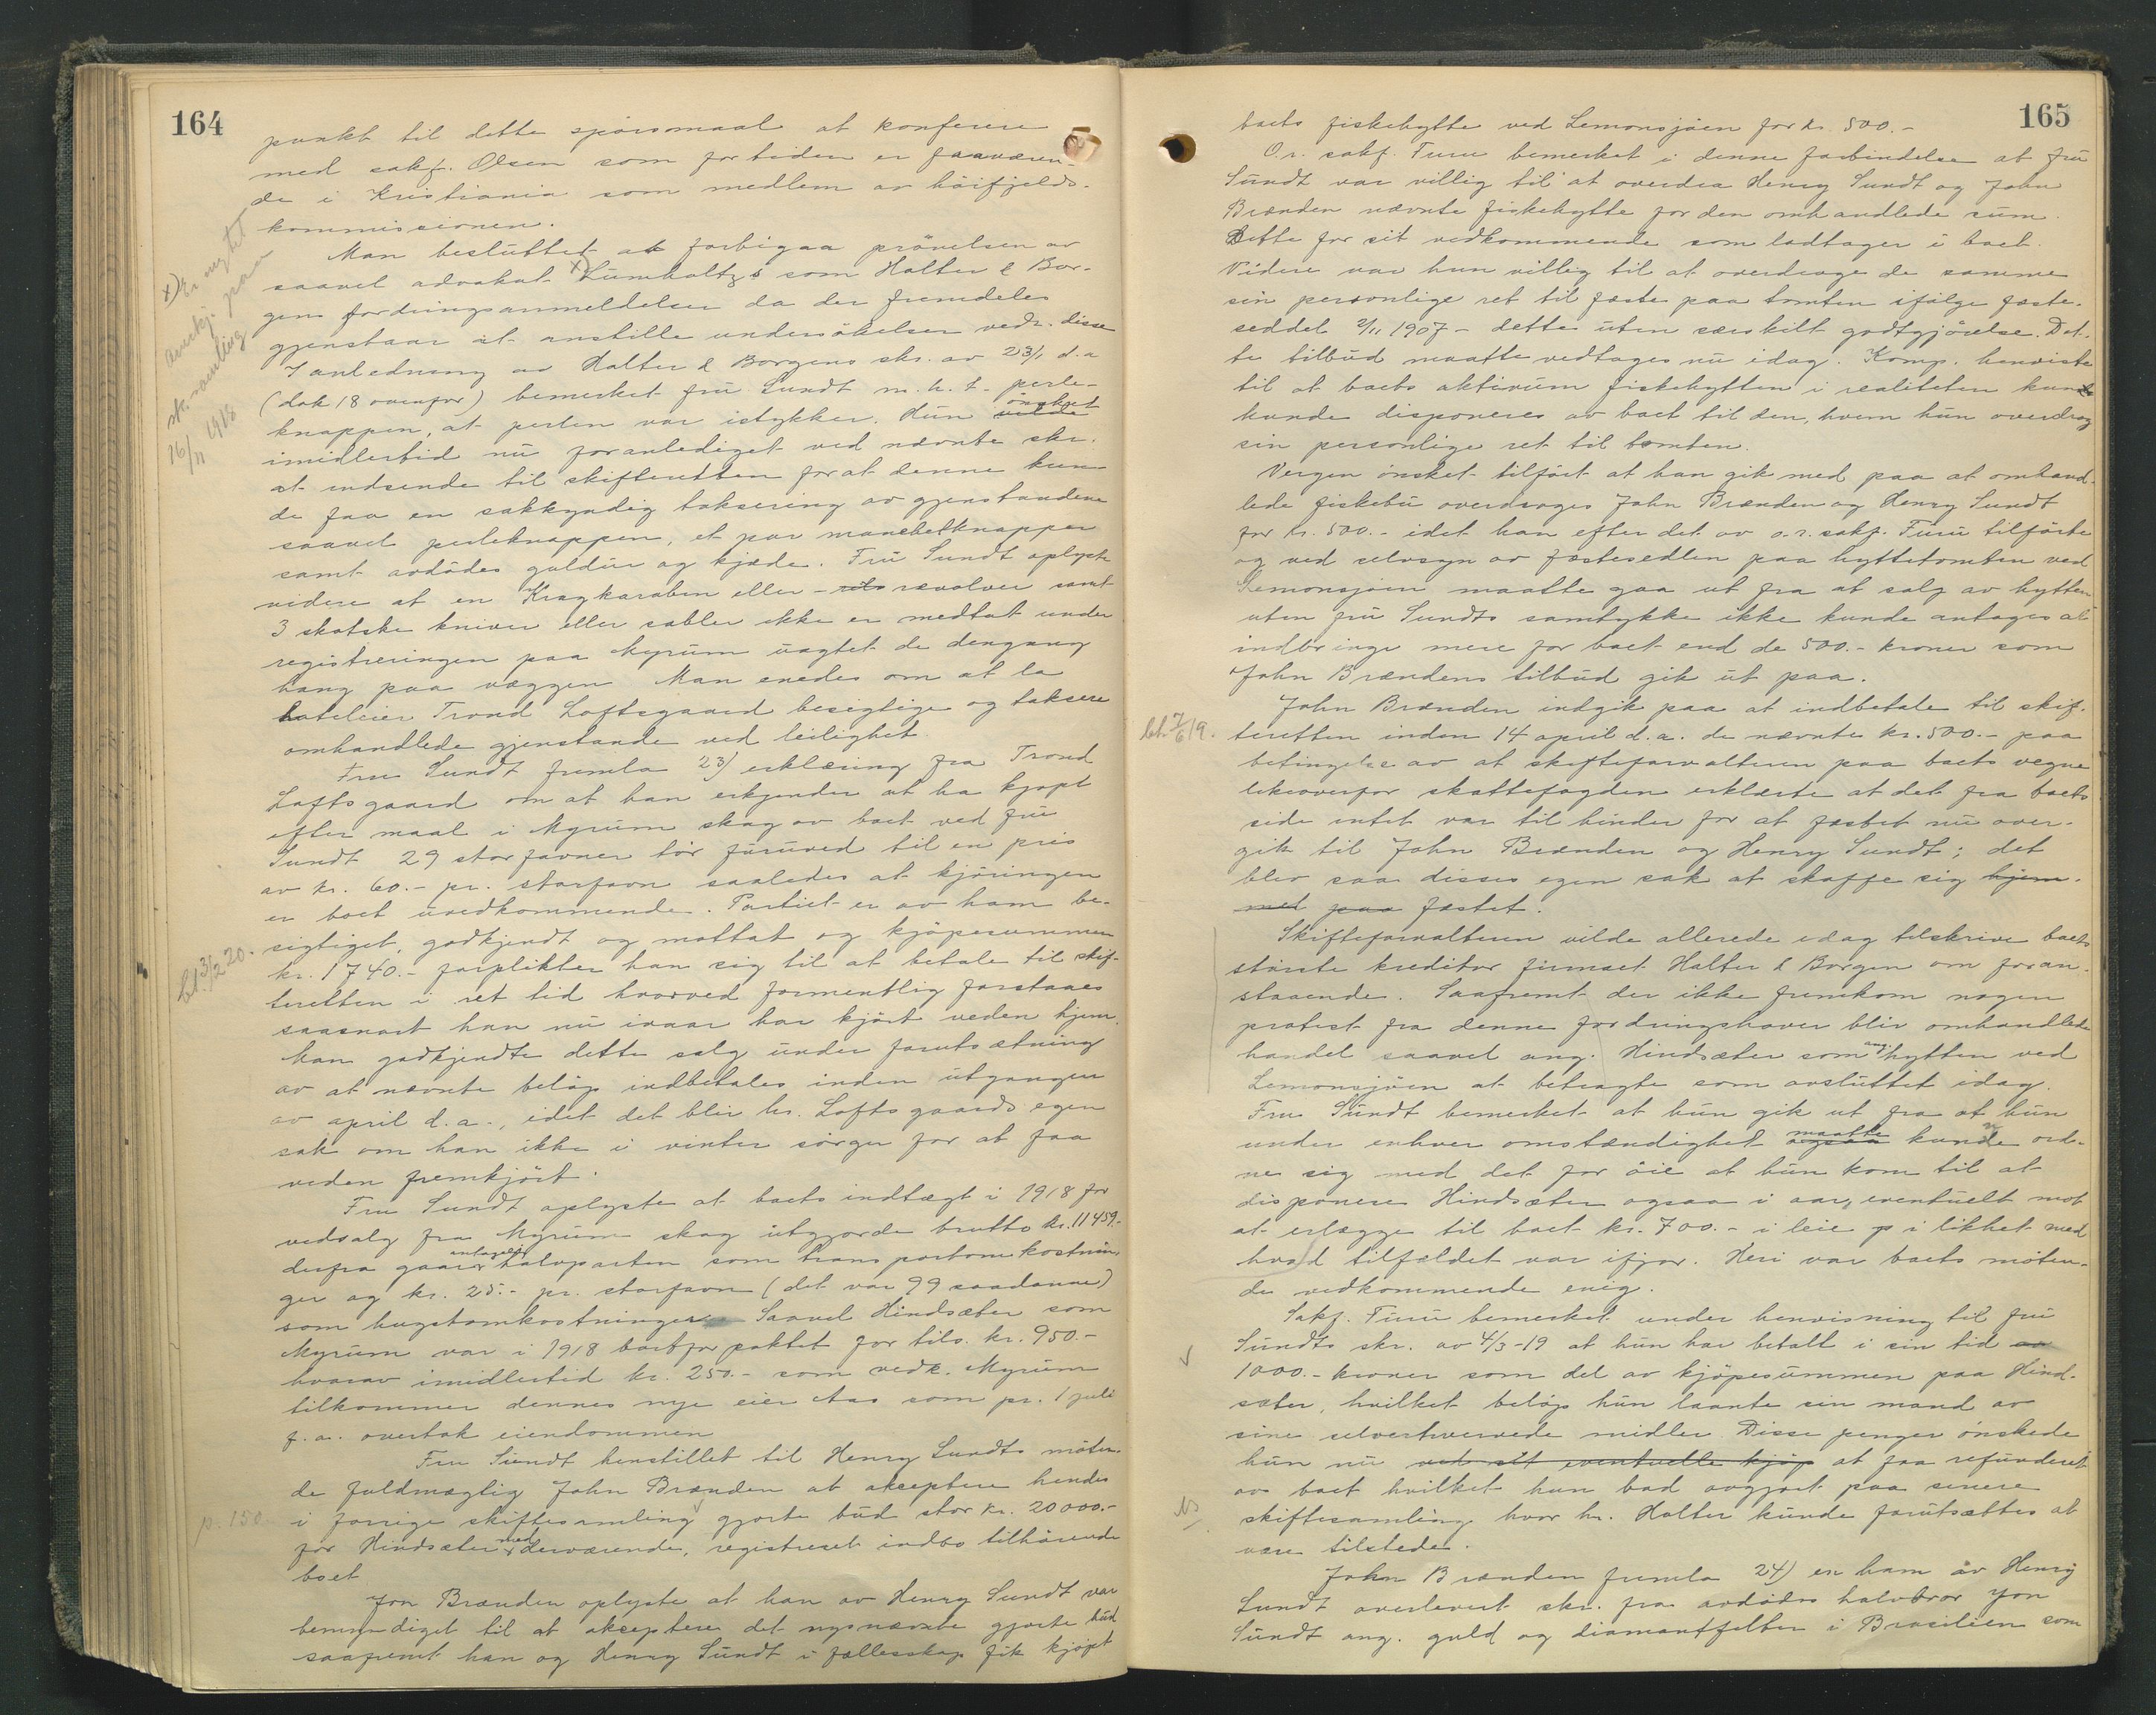 164
punkt til dette spörsmaal at konferere
med sakf. Olsen som for tiden er fraværen-
de i Kristiania som medlem av höifjelds-
kommissionen.
Man besluttet at forbigaa prövelsen av
saavel advokat x) Lumholtz's som Halter & Bor-
gens fordringsanmeldelser da der fremdeles
gjenstaar at anstille undersökelser vedr. disse
I anledning av Halter & Borgens skr. av 23/1 d.a
(dok 18 ovenfor) bemerket fru Sundt m.h.t. perle-
knappen, at perlen var istykker. Hun vilde önsket
imidlertid nu foranlediget ved nævnte skr.
at indsende til skifteretten for at denne kun-
de faa en sakkyndig taksering av gjenstandene
saavel perleknappen, et par manchetknapper
samt avdödes guldur og kjæde. Fru Sundt oplyste
videre at en Kragkarabin eller revolver samt
3 skotske kniver eller sabler ikke er medtat under
registreringen paa Myrum uagtet de dengang
hang paa væggen. Man enedes om at la
hoteleier Trond Loftsgaard besigtige og taksere
omhandlede gjenstande ved leilighet.
Fru Sundt fremla 23) erklæring fra Trond
Loftsgaard om at han erkjender at ha kjøpt
efter maal i Myrum skog av boet ved fru
Sundt 29 storfavner tör furuved til en pris
av kr. 60.- pr. storfavn saaledes at kjöringen
er boet uvedkommende. Partiet er av ham be-
sigtiget, godkjendt og mottat og kjöpesummen
kr. 1740.- forplikter han sig til at betale til skif-
teretten i ret tid hvorved formentlig forstaaes
saasnart han nu ivaar har kjört veden hjem.
Man godkjendte dette salg under forutsætning
av at nævnte belöp indbetales inden utgangen
av april d.a., idet det blir hr. Loftsgaards egen
sak om han ikke i vinter sörger for at faa
veden fremkjört.
Fru Sundt oplyste at boets indtægt i 1918 for
vedsalg fra Myrum skog utgjorde brutto kr. 11459.-
derfra gaar antagelig halvparten som transportomkostnin-
ger og kr. 25.- pr. storfavn (det var 99 saadanne)
som hugstomkostninger. Saavel Hindsæter som
Myrum var i 1918 bortforpaktet for tils. kr. 950.-
hvorav imidlertid kr. 250.- som vedk. Myrum
tilkommer dennes nye eier Aas som pr. 1 juli
f.a. overtok eiendommen
Fru Sundt henstillet til Henry Sundts möten-
de fuldmægtig John Brænden at akseptere hendes
i forrige skiftesamling gjorte bud stor kr. 20000.-
for Hindsæter med derværende, registreret indbo tilhörende
boet.
Jon Brænden oplyste at han av Henry Sundt var
bemyndiget til at akseptere det nysnævnte gjorte bud
saafremt han og Henry Sundt i fællesskap fik kjöpt
x) Er nyttet
anskj. paa
sk. samling
16/11 1918
bt. 3/2 20.
p. 150
165
boets fiskehytte ved Lemonsjöen for kr. 500.-
O.r. sakf. Furu bemerket i denne forbindelse at fru
Sundt var villig til at overdra Henry Sundt og John
Brænden nævnte fiskehytte for den omhandlede sum.
Dette for sit vedkommende som lodtager i boet.
Videre var hun villig til at overdrage de samme
sin personlige ret til fæste paa tomten ifölge fæste-
seddel 2/11 1907 - dette uten særskilt godtgjörelse. Det-
te tilbud maatte vedtages nu idag. Komp. henviste
til at boets aktivum fiskehytten i realiteten kun
kunde disponeres av boet til den, hvem hun overdrog
sin personlige ret til tomten.
Vergen önsket tilfört at han gik med paa at omhand-
lede fiskebu overdrages John Brænden og Henry Sundt
for kr. 500.- idet han efter det av o.r. sakf. Furu tilförte
og ved selvsyn av fæstesedlen paa hyttetomten ved
Lemonsjöen maatte gaa ut fra at salg av hytten
uten fru Sundts samtykke ikke kunde antages at
indbringe mere for boet end de 500.- kroner som
John Brændens tilbud gik ut paa.
John Brænden indgik paa at indbetale til skif-
teretten inden 14 april d.a. de nævnte kr. 500.- paa
betingelse av at skifteforvalteren paa boets vegne
likeoverfor skattefogden erklærte at det fra boets
side intet var til hinder for at fæstet nu over-
gik til John Brænden og Henry Sundt; det
blev saa disses egen sak at skaffe sig hjem-
mel paa fæstet.
Skifteforvalteren vilde allerede idag tilskrive boets
störste kreditor firmaet Halter & Borgen om foran-
staaende. Saafremt der ikke fremkom nogen
protest fra denne fordringshaver blir omhandlede
handel saavel ang. Hindsæter som ang. hytten ved
Lemonsjöen at betragte som avsluttet idag.
Fru Sundt bemerket at hun gik ut fra at hun
under enhver omstændighet ogsaa maatte kunne ord-
ne sig med det for öie at hun kom til at
disponere Hindsæter ogsaa i aar, eventuelt mot
at erlægge til boet kr. 700.- i leie i likhet med
hvad tilfældet var ifjor. Heri var boets möten-
de vedkommende enig.
Sakf. Furu bemerket under henvisning til fru
Sundts skr. av 4/3-19 at hun har betalt i sin tid av
1000.- kroner som del av kjöpesummen paa Hind-
sæter, hvilket belöp hun laante sin mand av
sine selverhvervede midler. Disse penger önskede
hun nu ved sit eventuelle kjöp at faa refunderet
av boet hvilket hun bad avgjort paa senere
skiftesamling hvor hr. Halter kunde forutsættes at
være tilstede.
John Brænden fremla 24) en ham av Henry
Sundt overlevert skr. fra avdödes halvbror Jon
Sundt ang. guld og diamantfelter i Brasilien som
bt. 7/6 19.